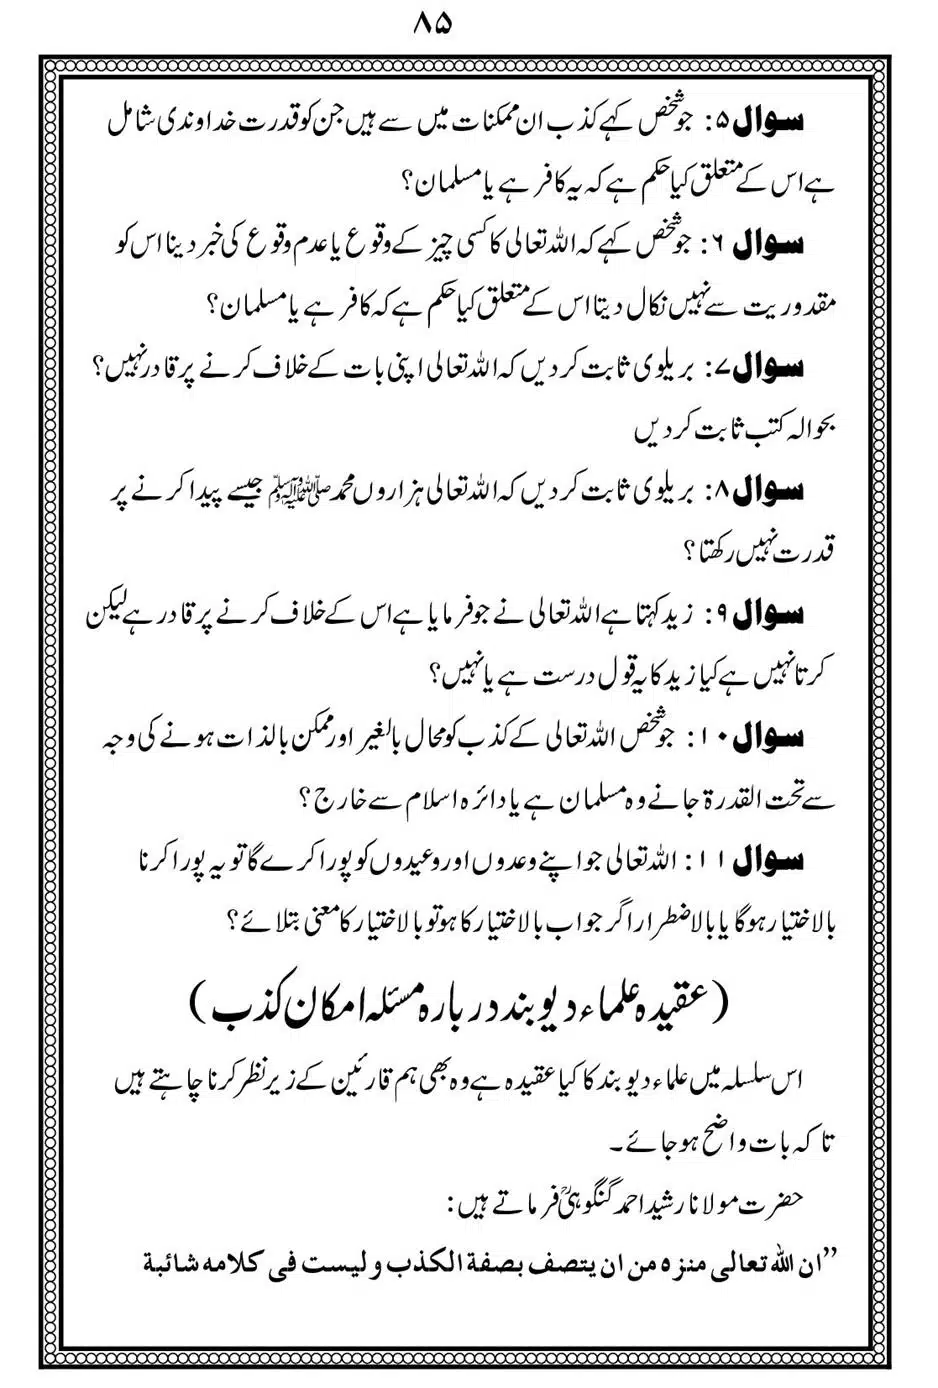 ۸۵
سوال ۵: جو شخص کہے کذب ان ممکنات میں سے ہیں جن کو قدرت خداوندی شامل
ہے اس کے متعلق کیا حکم ہے کہ یہ کافر ہے یا مسلمان؟
سوال ۶: جو شخص کہے کہ اللہ تعالی کا کسی چیز کے وقوع یا عدم وقوع کی خبر دینا اس کو
مقدوریت سے نہیں نکال دیتا اس کے متعلق کیا حکم ہے کہ کافر ہے یا مسلمان؟
سوال ۷: بریلوی ثابت کر دیں کہ اللہ تعالی اپنی بات کے خلاف کرنے پر قادر نہیں؟
بحوالہ کتب ثابت کر دیں
سوال ۸: بریلوی ثابت کر دیں کہ اللہ تعالی ہزاروں محمد ﷺ جیسے پیدا کرنے پر
قدرت نہیں رکھتا؟
سوال ۹: زید کہتا ہے اللہ تعالی نے جو فرمایا ہے اس کے خلاف کرنے پر قادر ہے لیکن
کرتا نہیں ہے کیا زید کا یہ قول درست ہے یا نہیں؟
سوال ۱۰: جو شخص اللہ تعالی کے کذب کو محال بالغیر اور ممکن بالذات ہونے کی وجہ
سے تحت القدرۃ جانے وہ مسلمان ہے یا دائرہ اسلام سے خارج؟
سوال ۱۱: اللہ تعالی جو اپنے وعدوں اور وعیدوں کو پورا کرے گا تو یہ پورا کرنا
بالاختیار ہوگا یا بالاضطرار اگر جواب بالاختیار کا ہو تو بالاختیار کا معنی بتلائے؟
(عقیدہ علماء دیوبند دربارہ مسئلہ امکان کذب)
اس سلسلہ میں علماء دیوبند کا کیا عقیدہ ہے وہ بھی ہم قارئین کے زیر نظر کرنا چاہتے ہیں
تاکہ بات واضح ہو جائے۔
حضرت مولانا رشید احمد گنگوہیؒ فرماتے ہیں:
”ان اللہ تعالی منزہ من ان یتصف بصفة الکذب و لیست فی کلامه شائبة